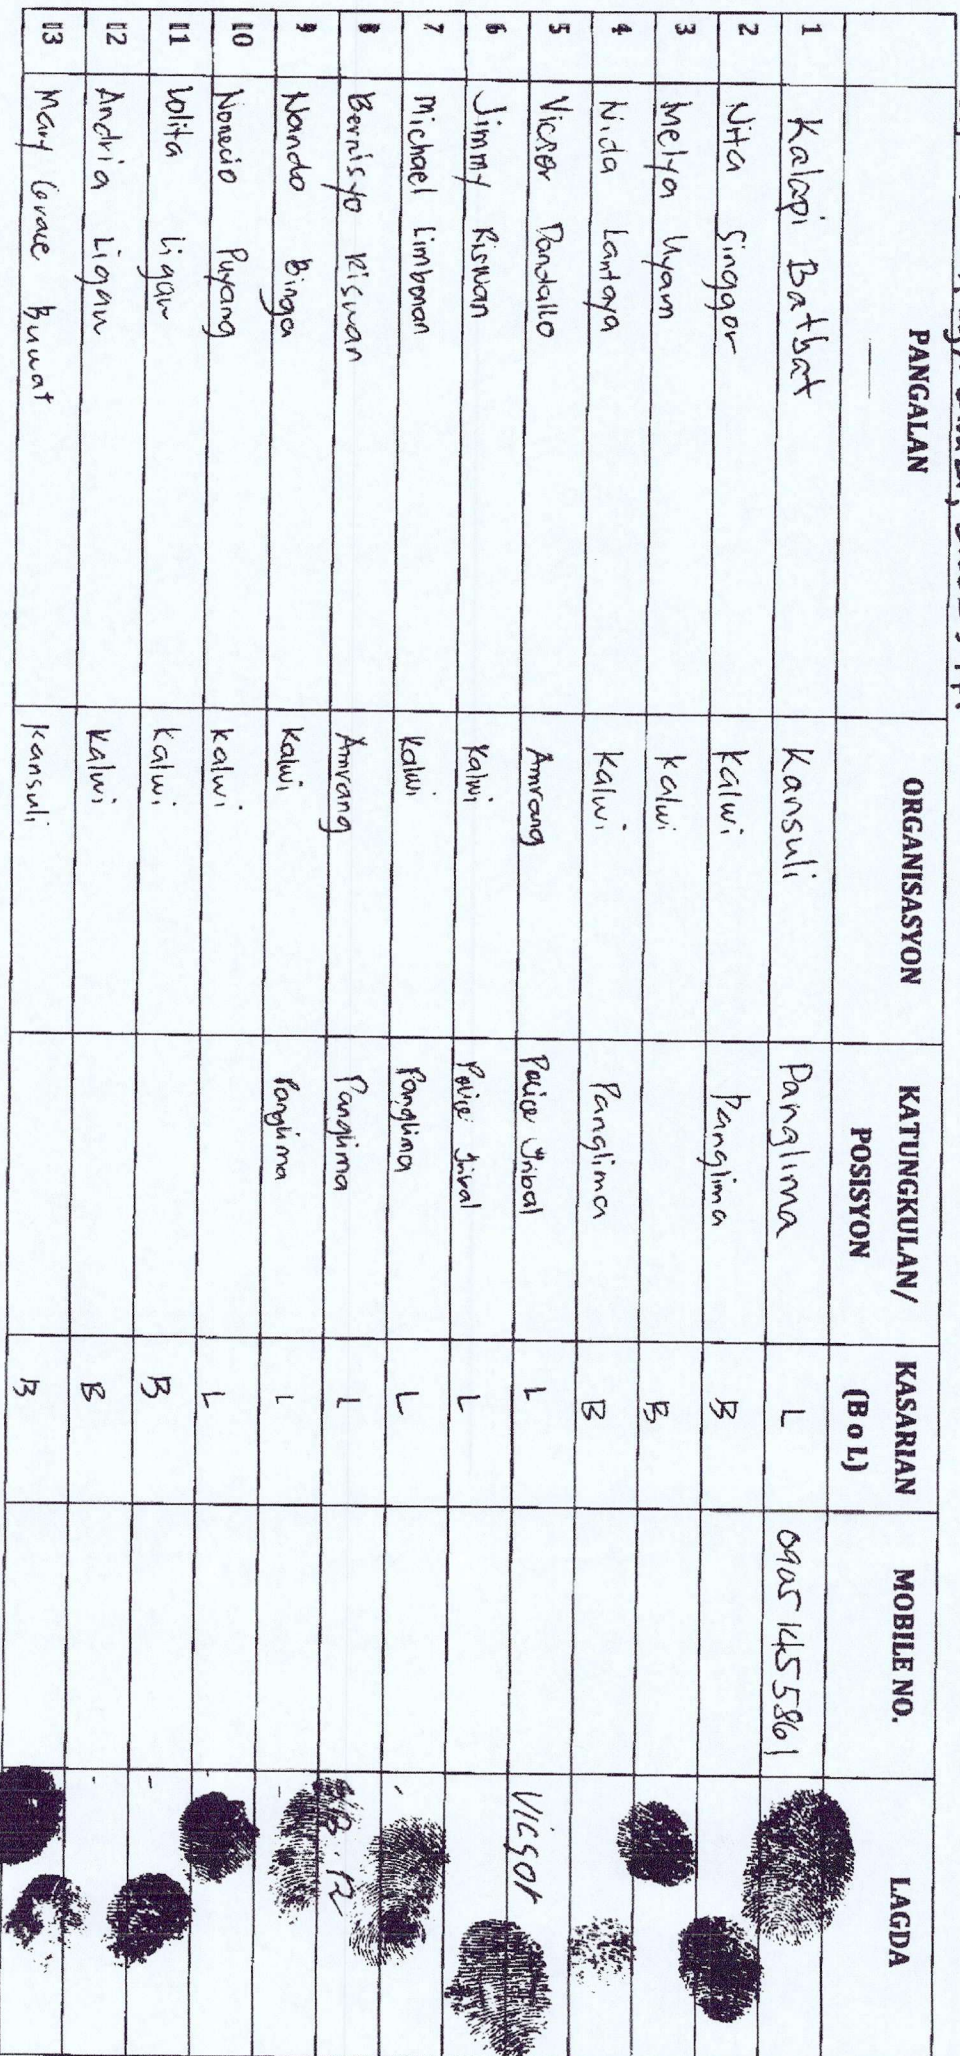 PANGALAN ORGANISASYON KATUNGKULAN/ POSISYON KASARIAN (B o L) MOBILE NO. LAGDA
1 Kalapi Batbat Kansuli Panglima L
2 Nita Singgor Kalwi Panglima B
3 Melya Uyam Kalwi B
4 Nida Lantaya Kalwi Panglima B
5 Vicsor Dandallo Amrang Police Tribal L Vicsor
6 Jimmy Riswan Kalwi Police Tribal L
7 Michael Limbonan Kalwi Panglima L
8 Bernisyo Riswan Amrang Panglima L B.R
9 Nando Binga Kalwi Panglima L
10 Nonecio Puyang Kalwi L
11 Lolita Ligaw Kalwi B
12 Andria Ligaw Kalwi B
13 Mary Grace Buwat Kansuli B